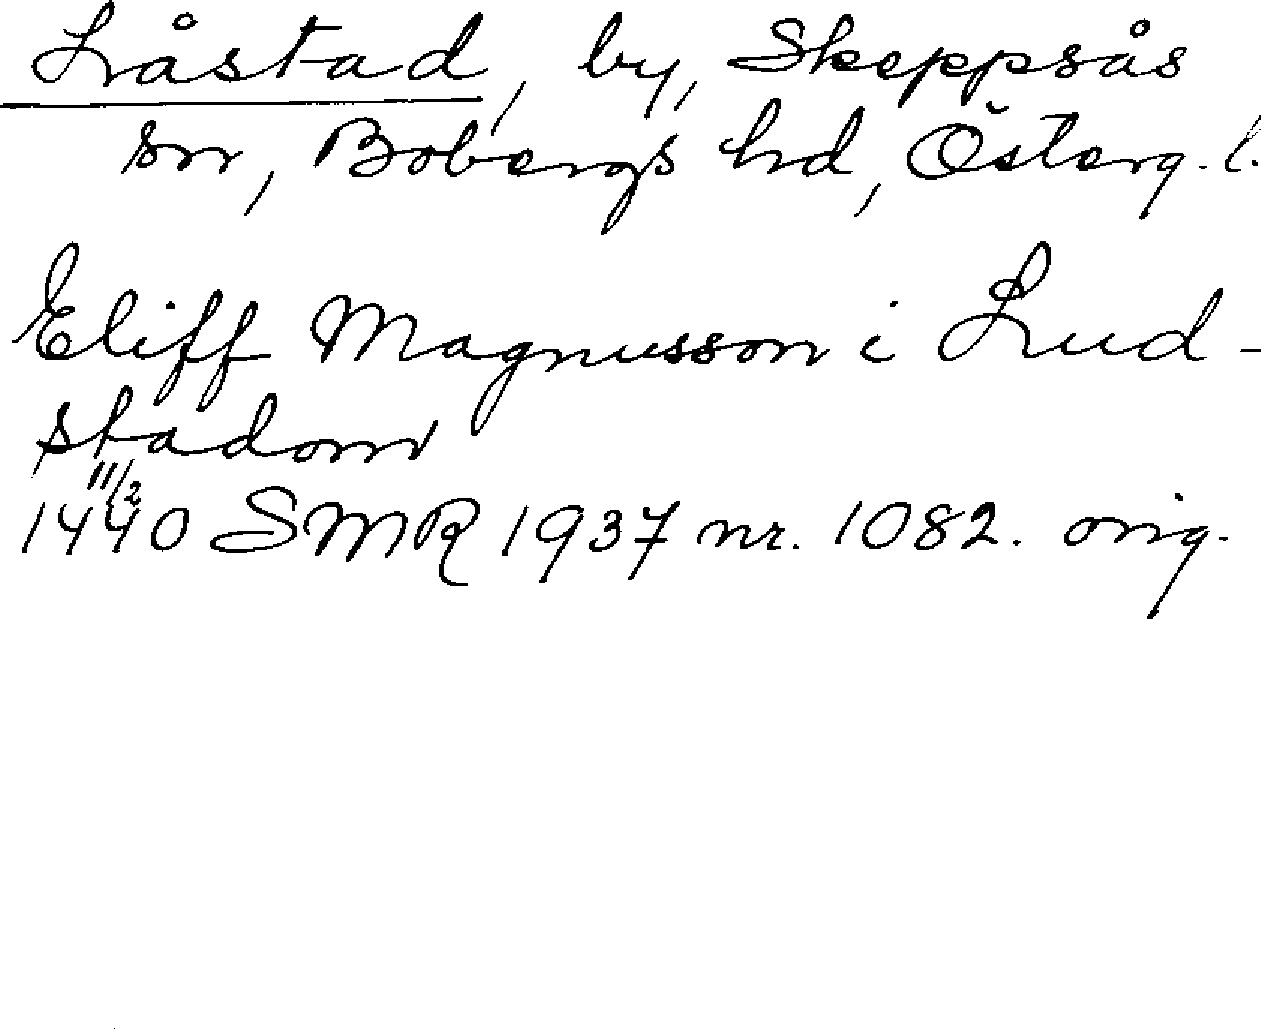 Låstad, by, Skeppsås
sn, Bobergs hd, Österg. l.
Eliff Magnusson i Lud-
stadom
1440 11/2 SMR 1937 nr. 1082. orig.